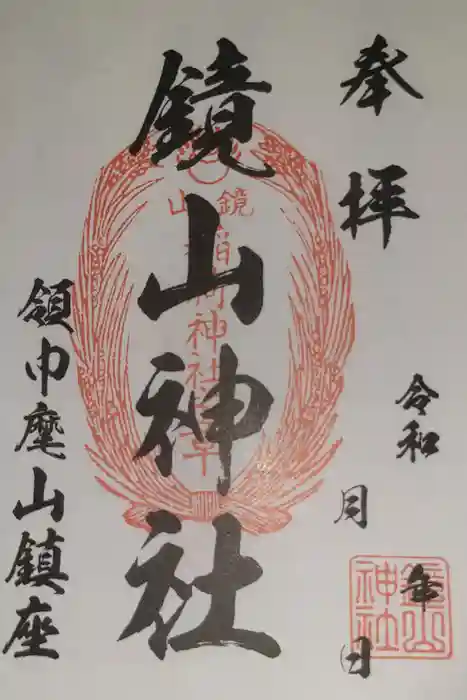 奉拝
令和
年
月
日
鏡山神社
領巾麾山鎮座
鏡山
稲荷神社
鏡山神社